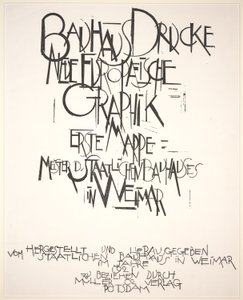 BAUHAUS DRUCKE
NEUE EUROPÆISCHE
GRAPHIK
ERSTE MAPPE =
MEISTER D. STAATLICHEN BAUHAUSES
IN WEIMAR
HERGESTELLT UND HERAUSGEGEBEN
VOM STAATLICHEN BAUHAUS IN WEIMAR
IM JAHRE
1921
ZU BEZIEHEN DURCH
MÜLLER & CO VERLAG
POTSDAM